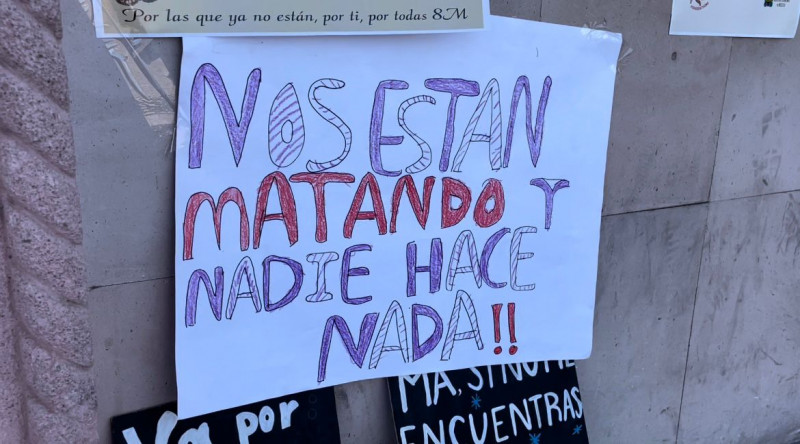 Por las que ya no están, por ti, por todas 8M
NOS ESTAN
MATANDO Y
NADIE HACE
NADA!!
Ya por
MA, SI NO ME
ENCUENTRAS